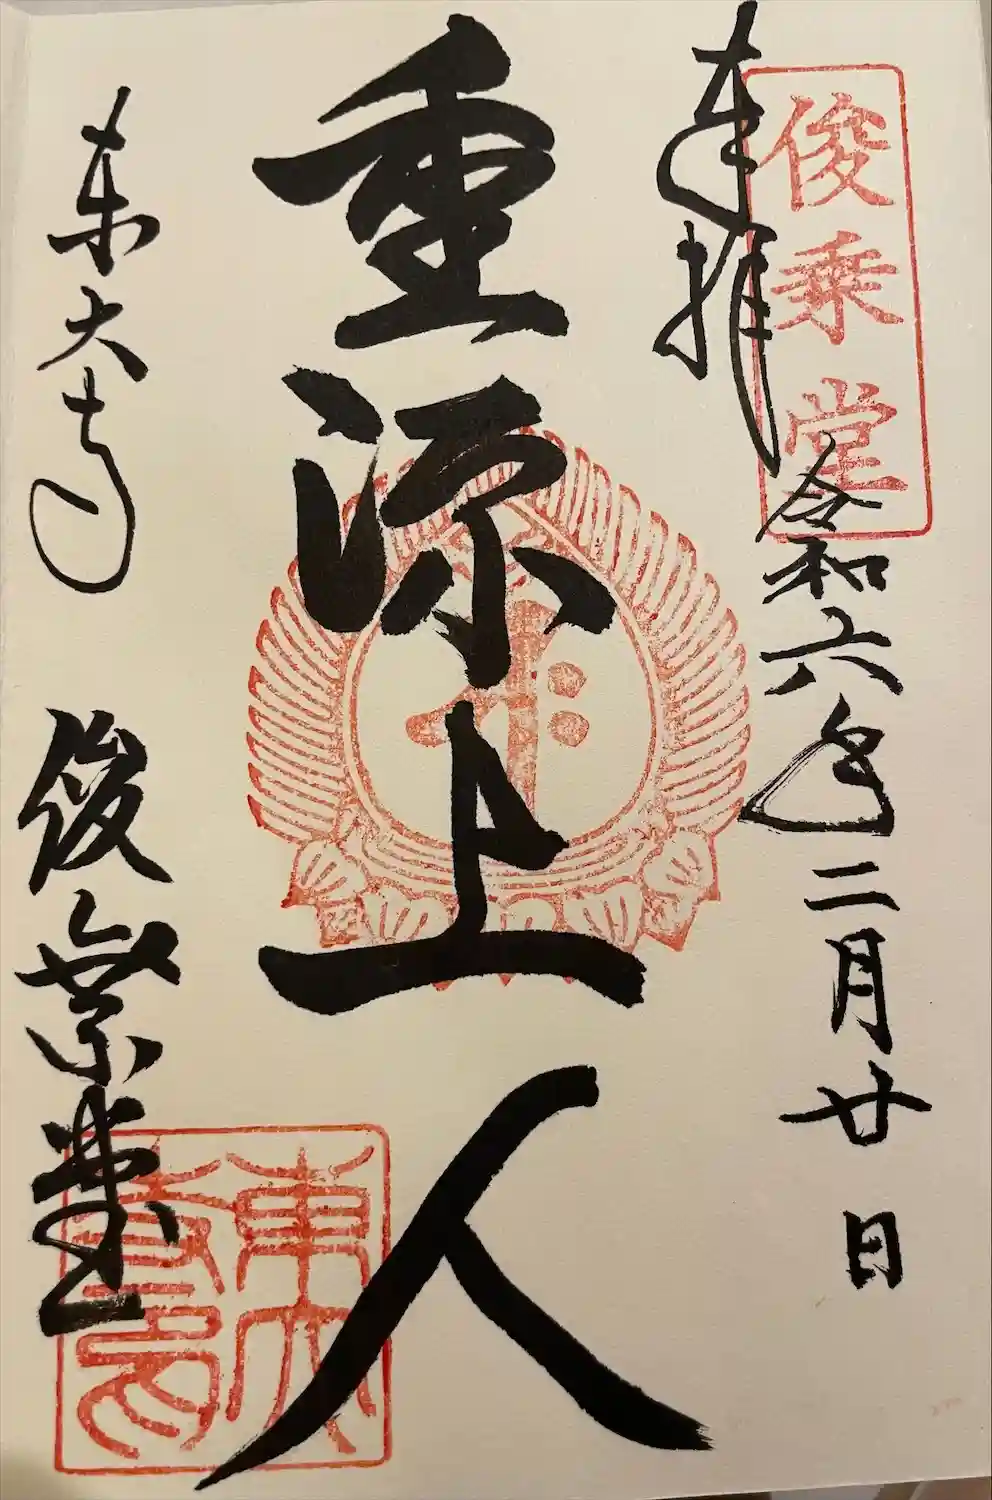 奉拝
俊乗堂
令和六年二月廿日
重源上人
東大寺
俊乗堂
東大寺印